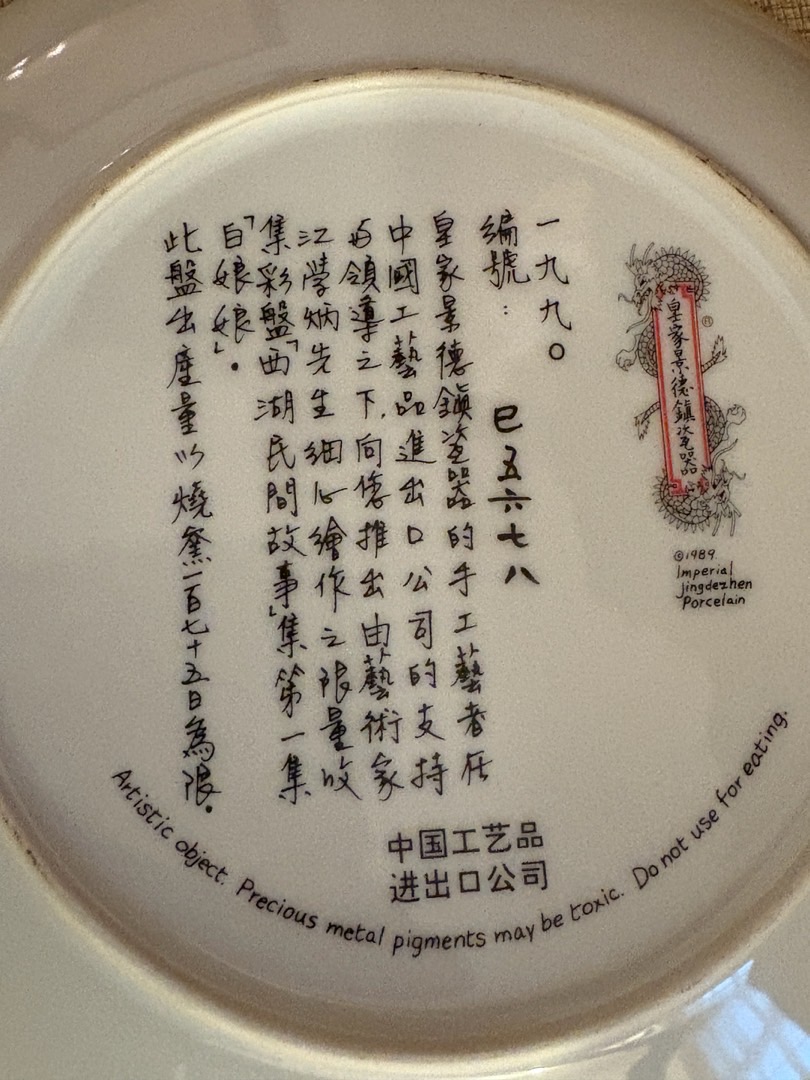 皇家景德鎮瓷器
®
©1989
Imperial
Jingdezhen
Porcelain
一九九〇
編號： 巳五六七八
皇家景德鎮瓷器的手工藝者在
中國工藝品進出口公司的支持
与領導之下,向您推出由藝術家
江學炳先生細心繪作之限量收
集彩盤「西湖民間故事」集第一集
「白娘娘」。
此盤出產量以燒窯一百七十五日為限。
中国工艺品
进出口公司
Artistic object. Precious metal pigments may be toxic. Do not use for eating.